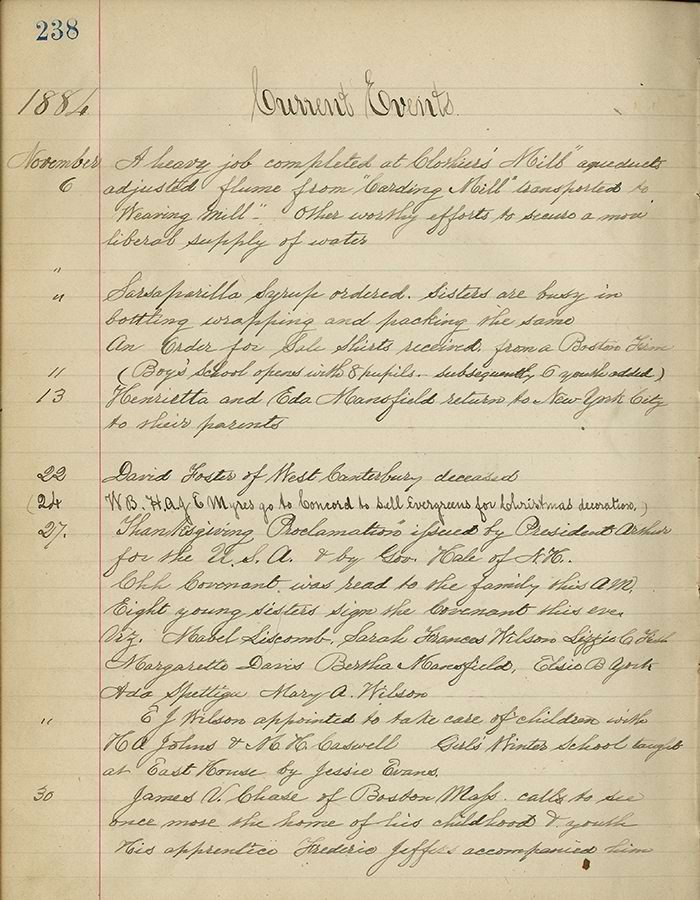 238
1884 Current Events.
November A heavy job completed at Clothiers' Mill" aqueducts
6 adjusted flume from "Carding Mill" transported to
"Weaving Mill"- Other worthy efforts to secure a more
liberal supply of water
"
" Sarsaparilla Syrup ordered. Sisters are busy in
bottling wrapping and packing the same
An Order for Sale Shirts received. from a Boston Firm
" (Boy's School opens with 8 pupils. subsequently 6 youth added)
13 Henrietta and Eda Mansfield return to New York City
to their parents
22 David Foster of West Canterbury deceased
(24 W B. H.A & E Myres go to Concord to sell Evergreens for Christmas decoration.)
27. Thanksgiving Proclamation" issued by President Arthur
for the U.S.A. & by Gov. Hale of N.H.
Chh Covenant was read to the family this A.M.
Eight young sisters sign the Covenant this eve.
Viz. Mabel Liscomb, Sarah Frances Wilson Lizzie C
Margarette Davis Bertha Mansfield, Elsie B York
Ada Spettigu Mary A. Wilson
" E J Wilson appointed to take care of children with
H A Johns & M. H. Caswell Girls' Winter School taught
at East House by Jessie Evans.
30 James V. Chase of Boston Mass. calls to see
once more the home of his childhood & youth
His apprentice Frederic accompanied him